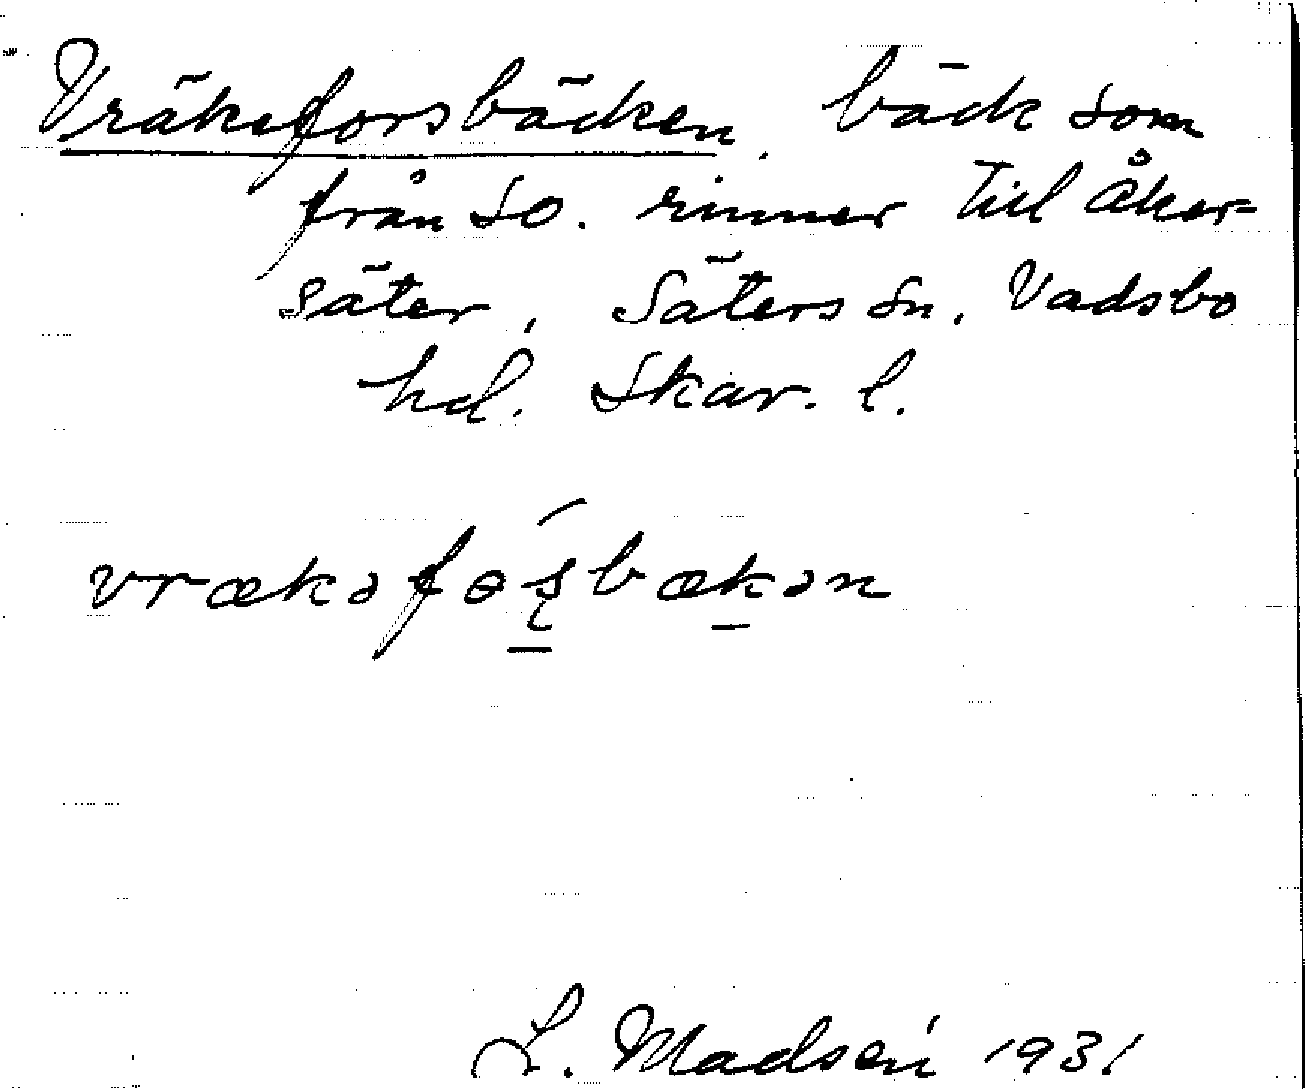 Vräkeforsbäcken, bäck som
från SO. rinner till Åker-
säter, Säters sn, Vadsbo
hd. Skar. l.
vrækəfɵʂbækən
L. Madsén 1931